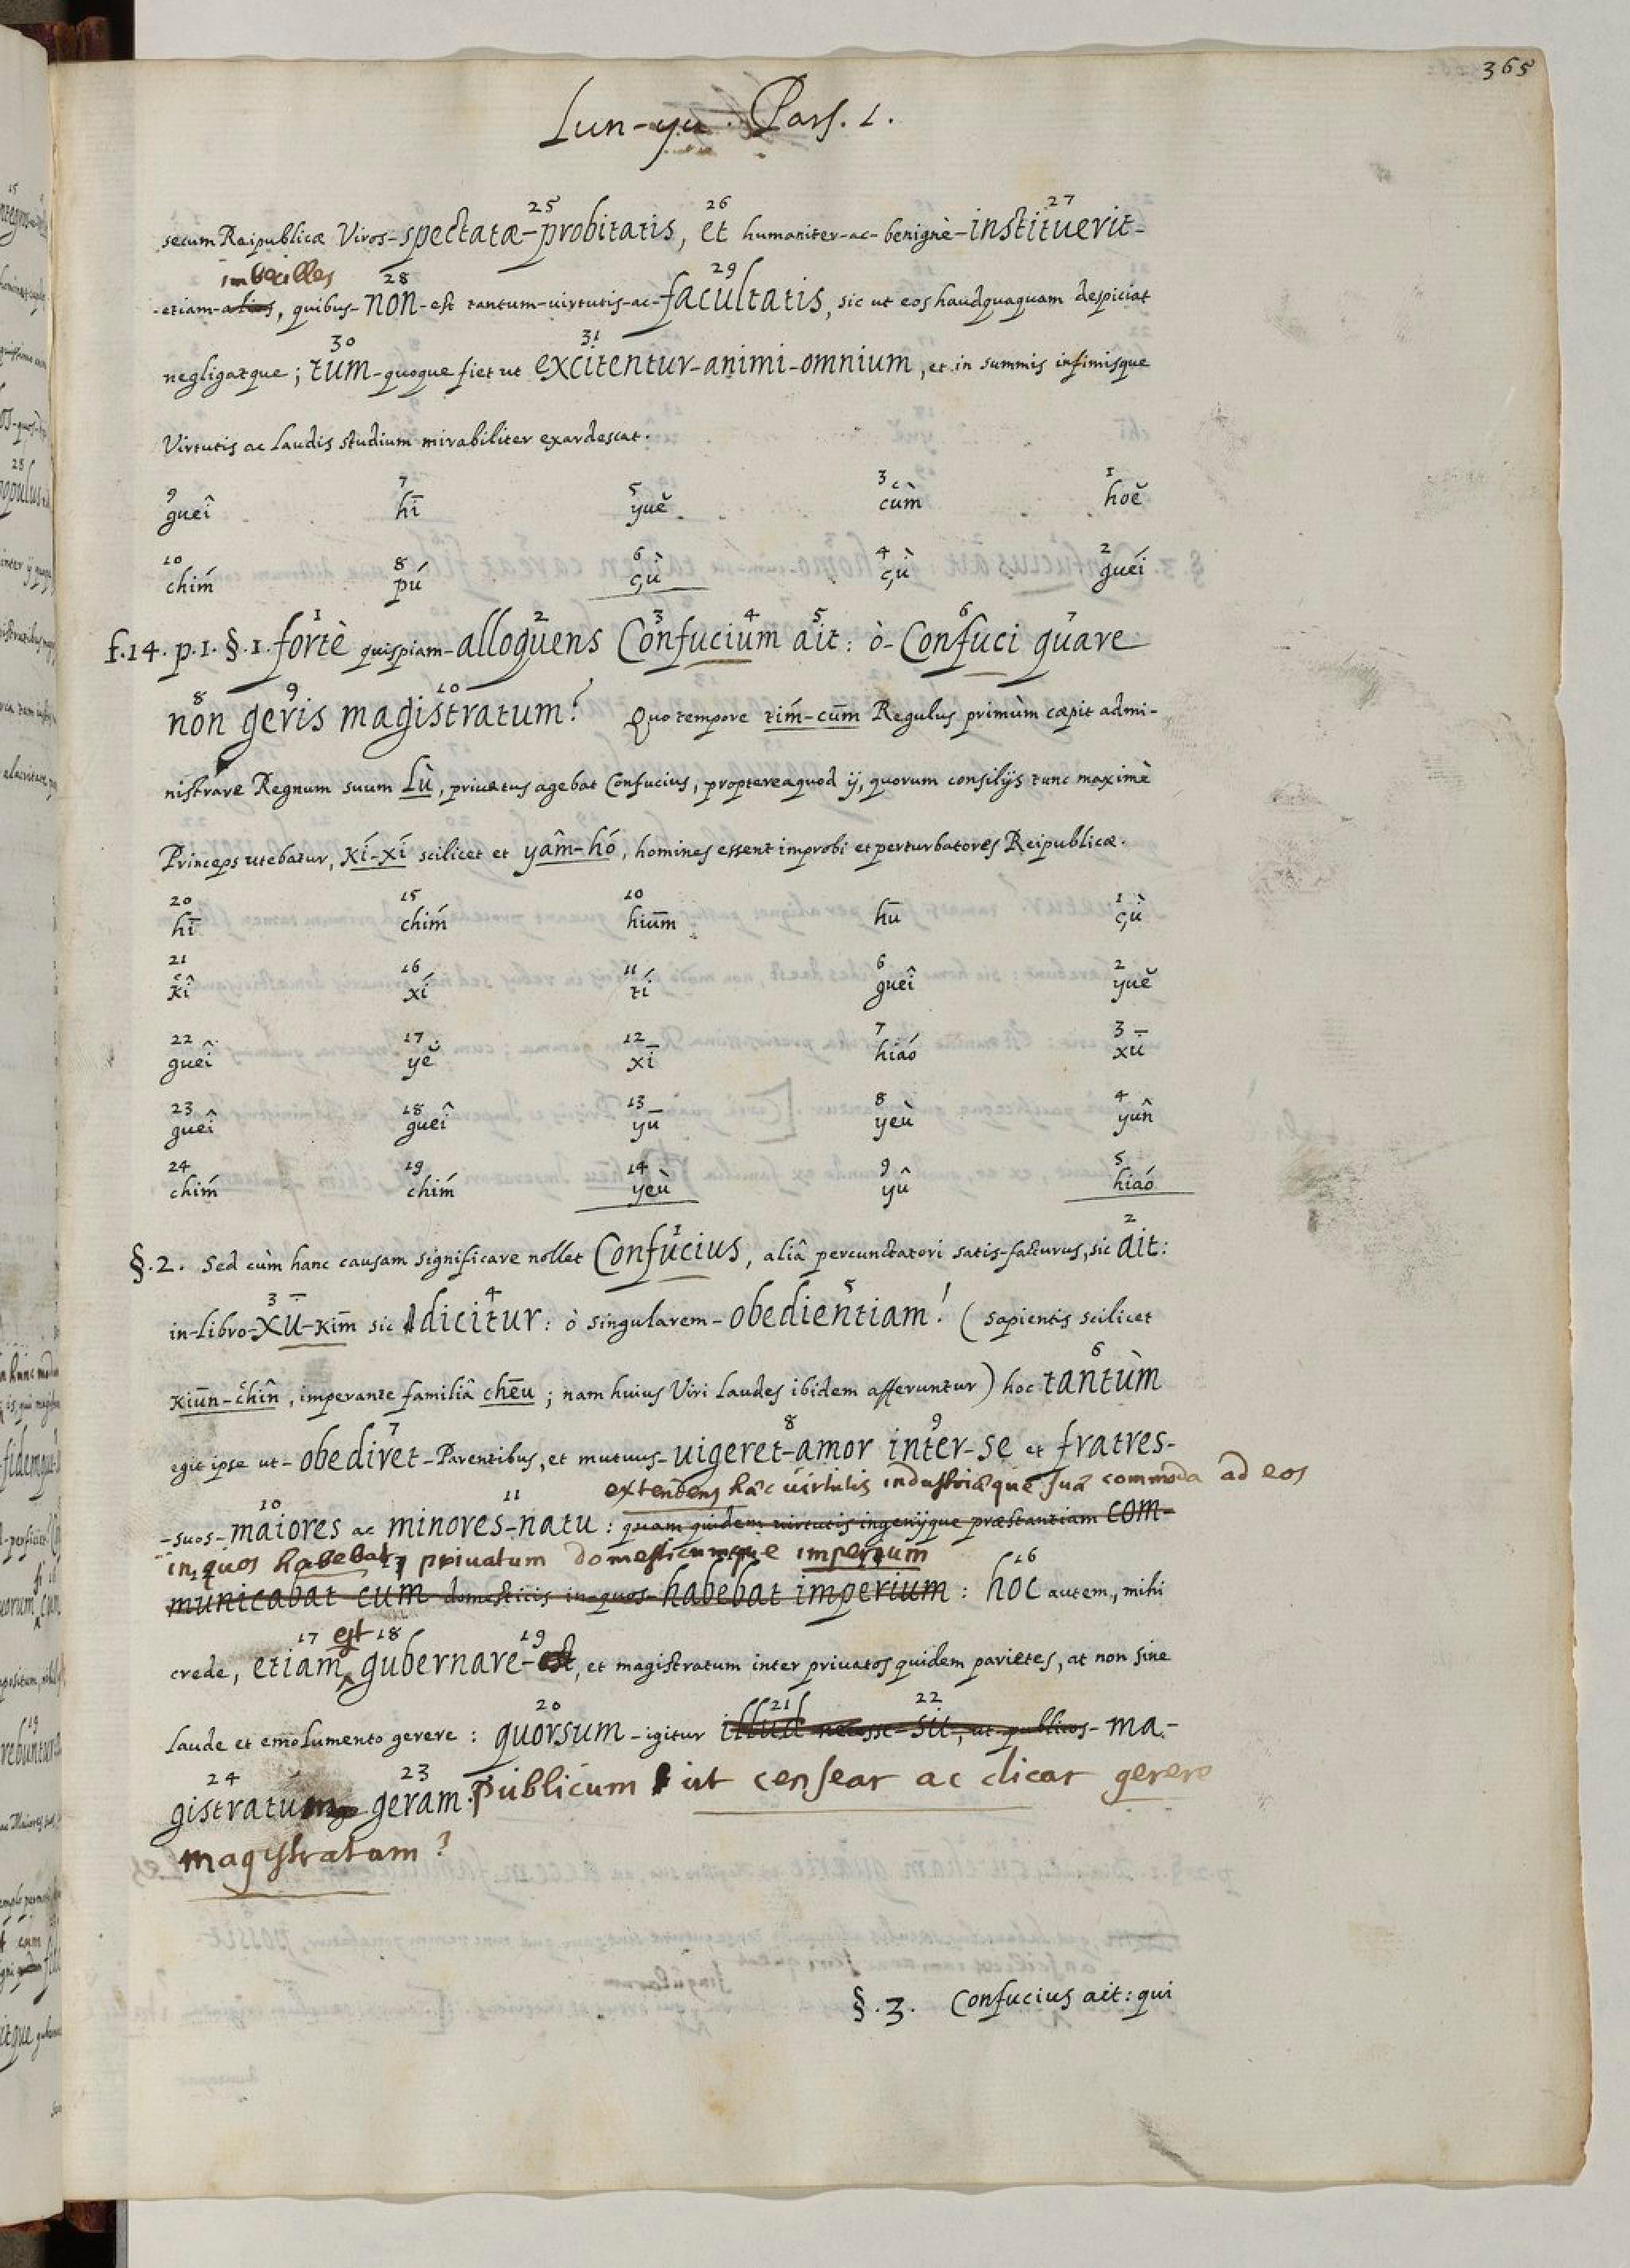 365
Lun-yu. Pars. 1.
25 26 27
secum Reipublicæ Viros-spectatæ-probitatis, et humaniter-ac-benignè-instituerit-
imbecilles 28 29
-etiam-alios, quibus-non-est tantum-virtutis-ac-facultatis, sic ut eos haudquaquam despiciat
30 31
negligatque; tum-quoque fiet ut excitentur-animi-omnium, et in summis infimisque
Virtutis ac Laudis studium mirabiliter exardescat.
9 7 5 3 1
gueî hī yuĕ cùm hoĕ
10 8 6 4 2
chím pú çù çù guéi
1 2 3 4 5 6 7
f.14. p.1. §.1. fortè quispiam-alloquens Confucium ait: ò-Confuci quare
8 9 10
non geris magistratum? Quo tempore tím-cūm Regulus primùm cœpit admi-
nistrare Regnum suum Lù, privatus agebat Confucius, proptereaquod ij, quorum consilijs tunc maximè
Princeps utebatur, Kí-xí scilicet et yâm-hó, homines essent improbi et perturbatores Reipublicæ.
20 15 10 1
hī chím hiūm hū çù
21 16 11 6 2
kî xí tí gueî yuĕ
22 17 12 7 3
gueî yĕ xī hiáo xū
23 18 13 8 4
gueî gueî yū yeù yûn
24 19 14 9 5
chím chím yeù yû hiáo
1 2
§.2. Sed cùm hanc causam significare nollet Confucius, aliâ percunctatori satis-facturus, sic ait:
3 4 5
in-libro-Xū-Kīm sic dicitur: ò singularem-obedientiam! (sapientis scilicet
6
Kiūn-chîn, imperante familiâ chēu; nam huius Viri Laudes ibidem afferuntur) hoc tantùm
7 8 9
egit ipse ut-obediret-Parentibus, et mutuus-uigeret-amor inter-se et fratres-
extendens hâc virtutis industriæque suæ commoda ad eos
10 11
-suos-maiores ac minores-natu: quam quidem virtutis ingenijque præstantiam com-
in quos habebat privatum domesticumque imperium
16
municabat cum domesticis in-quos-habebat imperium: hoc autem, mihi
17 est 18 19
crede, etiam gubernare-est, et magistratum inter privatos quidem parietes, at non sine
20 21 22
Laude et emolumento gerere: quorsum-igitur illud necesse-sit, ut publicos-ma-
24 23
gistratum geram. Publicum ut censear ac dicar gerere
magistratum?
§.3. Confucius ait: qui